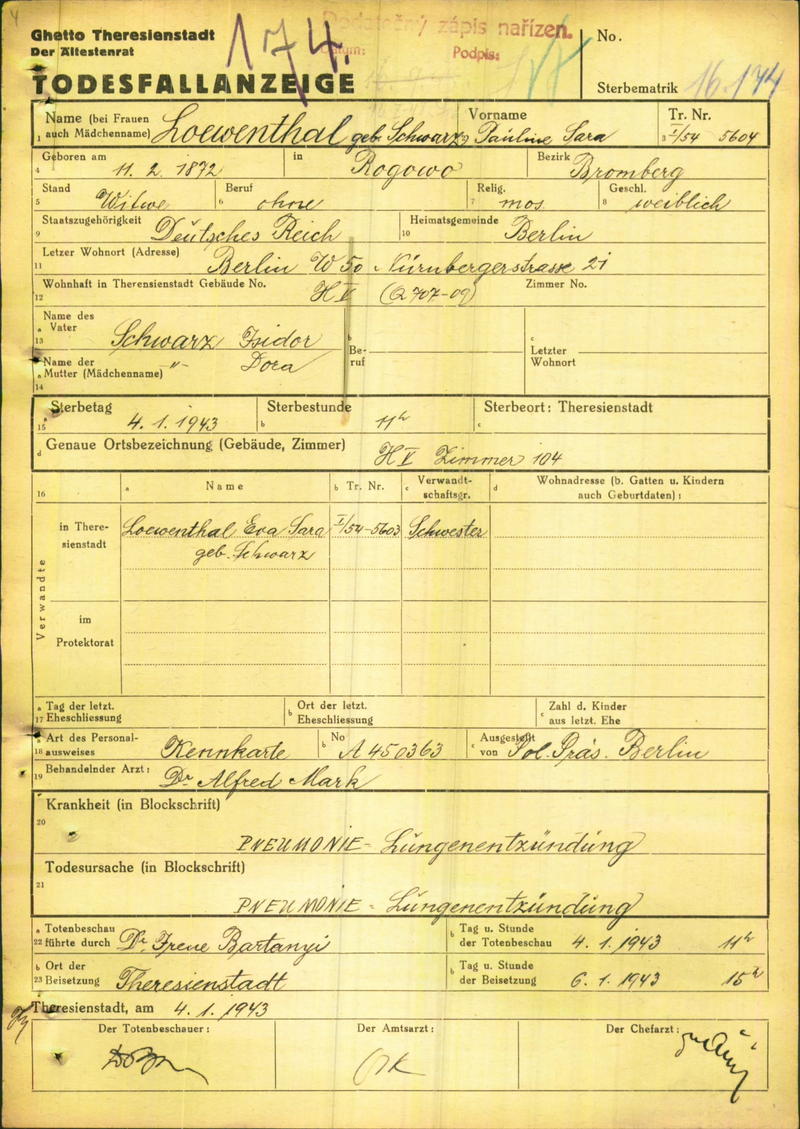 Ghetto Theresienstadt
Der Ältestenrat
TODESFALLANZEIGE
174.
Dodatečný zápis nařízen.
Datum:
Podpis:
No.
Sterbematrik 16.174
Name (bei Frauen
1 auch Mädchenname) Loewenthal geb. Schwarz
Vorname
2 Pauline Sara
Tr. Nr.
3 I/54 5604
4 Geboren am 11. 2. 1872 in Rogowo Bezirk Bromberg
5 Stand Witwe
6 Beruf ohne
7 Relig. mos
8 Geschl. weiblich
9 Staatszugehörigkeit Deutsches Reich
10 Heimatsgemeinde Berlin
11 Letzer Wohnort (Adresse) Berlin W 50 Nürnbergerstrasse 21
12 Wohnhaft in Therensienstadt Gebäude No. H V (Q 707-09) Zimmer No.
Name des
a Vater
13 Schwarz Isidor
b Beruf
c Letzter
Wohnort
Name der
a Mutter (Mädchenname) -"- Dora
14
a Sterbetag
15 4. 1. 1943
b Sterbestunde 11h
c Sterbeort: Theresienstadt
d Genaue Ortsbezeichnung (Gebäude, Zimmer) H V Zimmer 104
16 a Name b Tr. Nr. c Verwandt-
schaftsgr. d Wohnadresse (b. Gatten u. Kindern
auch Geburtdaten):
Verwandte
in There-
sienstadt
Loewenthal Eva Sara I/54-5603 Schwester
geb. Schwarz
im
Protektorat
a Tag der letzt.
17 Eheschliessung
b Ort der letzt.
Eheschliessung
c Zahl d. Kinder
aus letzt. Ehe
a Art des Personal-
18 ausweises Kennkarte
b No A 450363
c Ausgestellt
von Pol. Präs. Berlin
19 Behandelnder Arzt: Dr. Alfred Mark
Krankheit (in Blockschrift)
20
PNEUMONIE - Lungenentzündung
Todesursache (in Blockschrift)
21
PNEUMONIE - Lungenentzündung
a Totenbeschau
22 führte durch Dr. Irene Bartanyi
b Tag u. Stunde
der Totenbeschau 4. 1. 1943 11h
b Ort der
23 Beisetzung Theresienstadt
b Tag u. Stunde
der Beisetzung 6. 1. 1943 15h
Theresienstadt, am 4. 1. 1943
Der Totenbeschauer:
Der Amtsarzt:
Der Chefarzt: